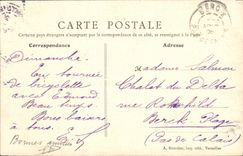 CARTE POSTALE
Certains pays étrangers n'acceptent pas de correspondance de ce côté, se renseigner à la Poste
Correspondance
Adresse
BERCK
Dimanche.
en tournée
de bicyclette
avec Edouard
Beau temps
Bons baisers
à tous.
Bonnes amitiés
Madame Salmon
Chalet du Delta
rue Rothschild
Berck Plage
(Pas de Calais)
A. Bourdier, imp., Versailles